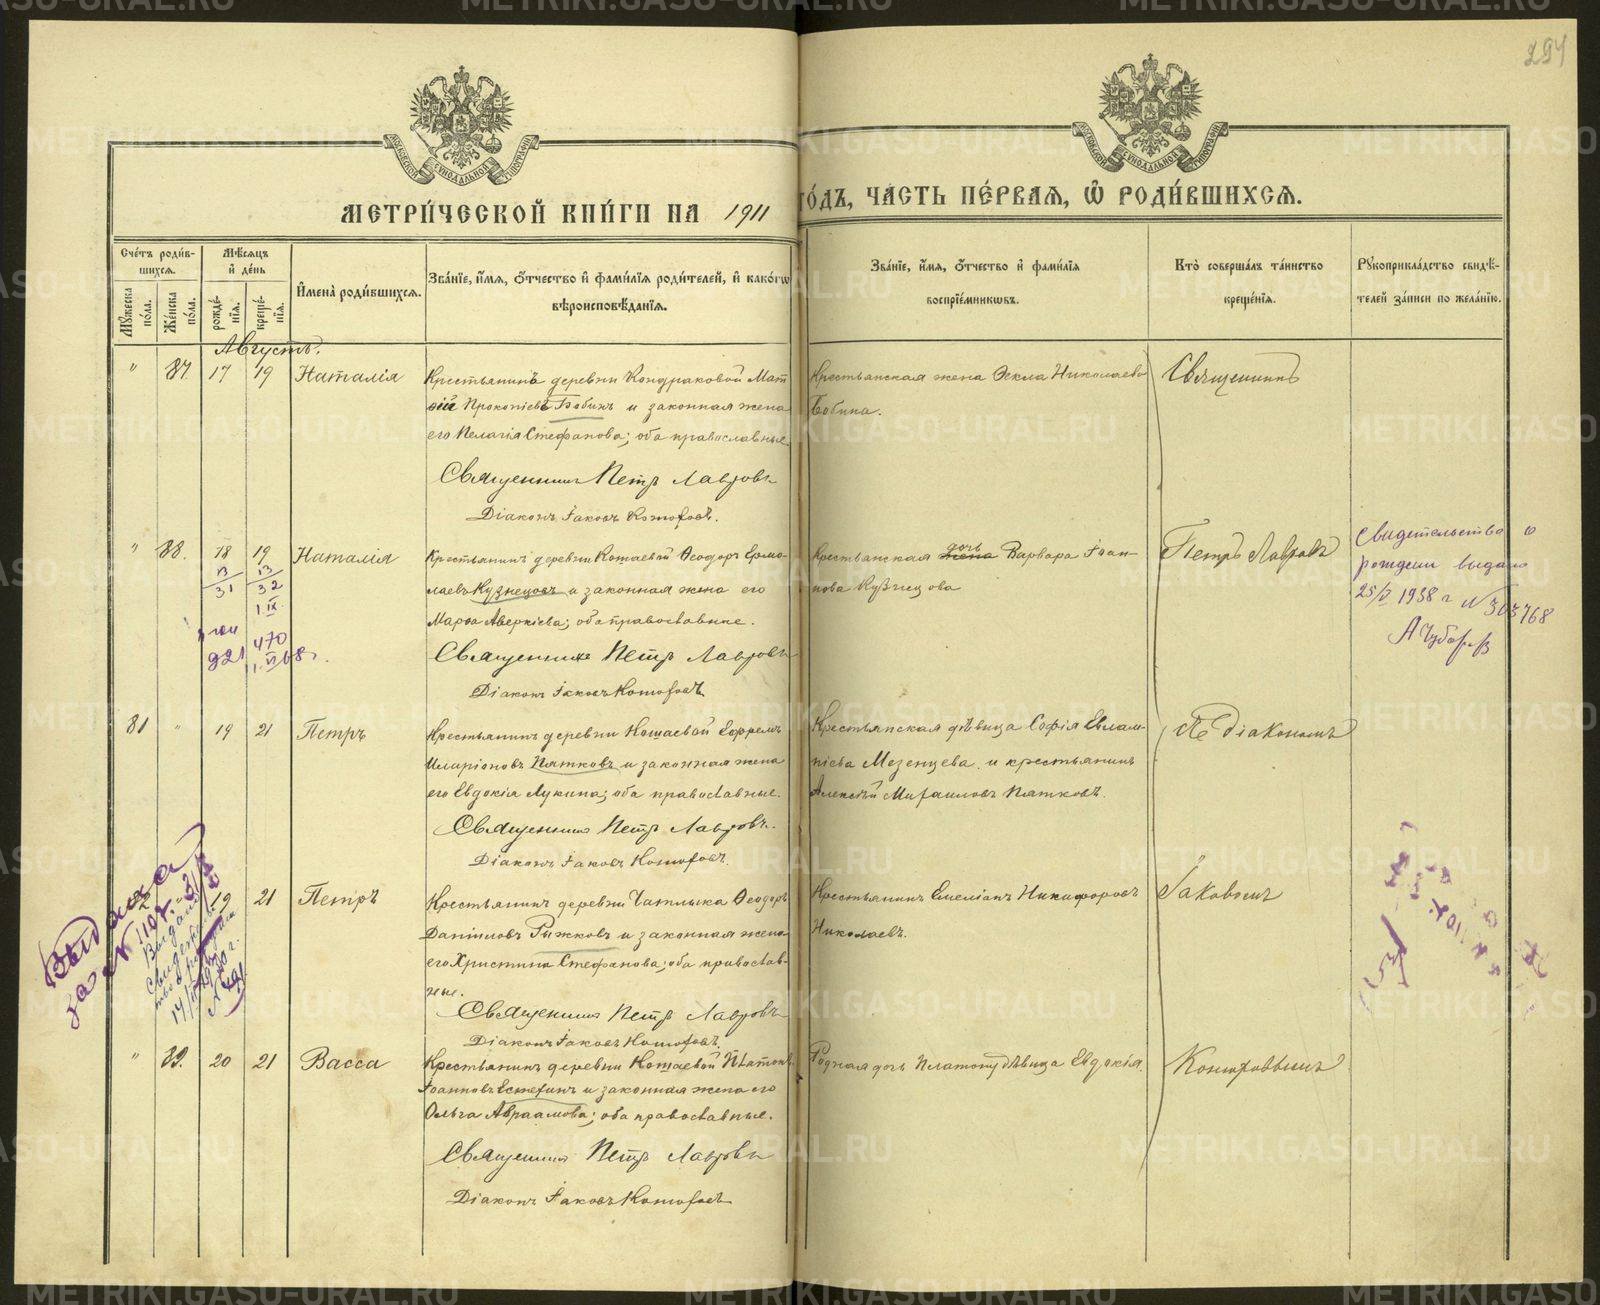 294
МЕТРИ́ЧЕСКОЙ КНИ́ГИ НА 1911 ГО́ДЪ, ЧА́СТЬ ПЕ́РВАЯ, Ѿ РОДИ́ВШИХСЯ.
МОСКОВСКОЙ СѴНОДАЛЬНОЙ ТИПОГРАФІИ
МОСКОВСКОЙ СѴНОДАЛЬНОЙ ТИПОГРАФІИ
Сче́тъ роди́в-
шихся.
Мѣ́сяцъ
и҆ де́нь
Мꙋ́жеска по́ла.
Же́нска по́ла.
рожде́-
нія.
креще́-
нія.
И҆мена̀ роди́вшихся.
Зва́нїе, и҆́мя, ѻ҆́тчество и҆ фами́лїя роди́телей, и҆ како́гѡ
вѣроисповѣ́данїя.
Зва́нїе, и҆́мя, ѻ҆́тчество и҆ фами́лїя
воспрїе́мникѡвъ.
Кто̀ соверша́лъ та́инство
креще́нїя.
Рꙋкоприкла́дство свидѣ́-
телей за́писи по жела́нїю.
Августъ.
" 87. 17 19 Наталія
Крестьянинъ деревни Кондраковой Мат
ѳій Прокопіевъ Бобинъ и законная жена
его Пелагія Стефанова; оба православные.
Священникъ Петръ Лавровъ
Діаконъ Іаковъ Конюховъ.
Крестьянская жена Ѳекла Николаева
Бобина.
Священникъ
" 88. 18 19 Наталія
13 13
31 32
1.IX.
470
921
Крестьянинъ деревни Кошаевой Ѳеодоръ Ермо-
лаевъ Кузнецовъ и законная жена его
Марѳа Аверкіева; оба православные.
Священникъ Петръ Лавровъ
Діаконъ Іаковъ Конюховъ.
Крестьянская жена дочь Варвара Іоан-
нова Кузнецова
Петръ Лавровъ
Свидетельство о
рождении выдано
25/V 1938 г N 303768
81 " 19 21 Петръ
Крестьянинъ деревни Кошаевой Ефремъ
Иларіоновъ Пятковъ и законная жена
его Евдокія Лукина; оба православные.
Священникъ Петръ Лавровъ.
Діаконъ Іаковъ Конюховъ.
Крестьянская дѣвица Софія Евлам-
піева Мезенцева и крестьянинъ
Алексѣй Михаиловъ Пятковъ.
съ діакономъ
19 21 Петръ
Выдана
за N 1107.
Выдано
Свидетельство
Крестьянинъ деревни Чатлыка Ѳеодоръ
Даніиловъ Рыжковъ и законная жена
его Христина Стефанова; оба православ-
ные.
Священникъ Петръ Лавровъ
Діаконъ Іаковъ Конюховъ.
Крестьянинъ Емеліанъ Никифоровъ
Николаевъ.
Іаковомъ
" 89. 20 21 Васса
Крестьянинъ деревни Кошаевой Платонъ
Іоанновъ Естехинъ и законная жена его
Ольга Авраамова; оба православные.
Священникъ Петръ Лавровъ
Діаконъ Іаковъ Конюховъ
Родная дочь Платона дѣвица Евдокія.
Конюховымъ
METRIKI.GASO-URAL.RU